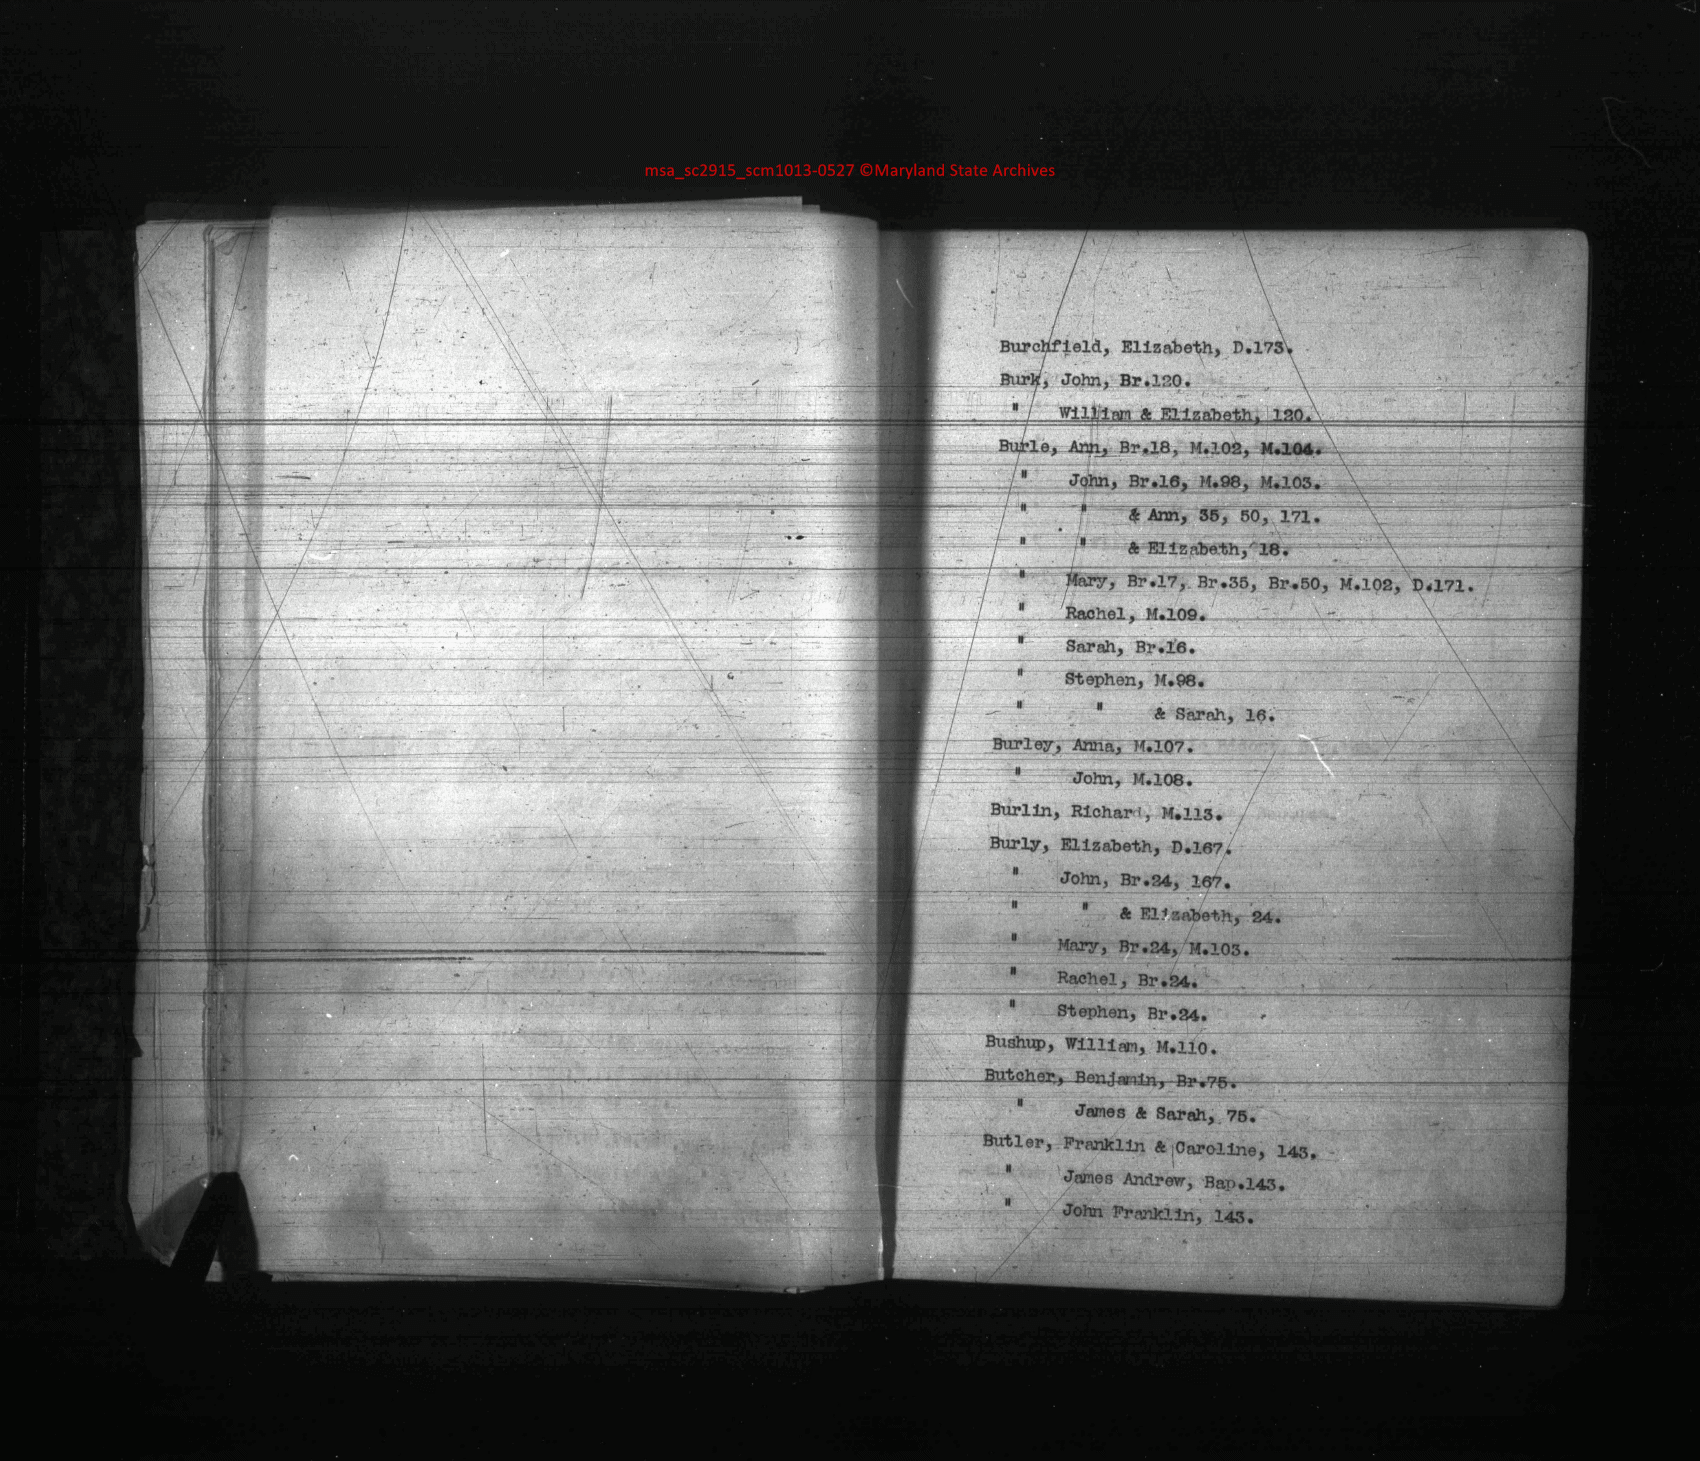 msa_sc2915_scm1013-0527 ©Maryland State Archives
Burchfield, Elizabeth, D.173.
Burk, John, Br.120.
" William & Elizabeth, 120.
Burle, Ann, Br.18, M.102, M.104.
" John, Br.16, M.98, M.103.
" " & Ann, 35, 50, 171.
" " & Elizabeth, 18.
" Mary, Br.17, Br.35, Br.50, M.102, D.171.
" Rachel, M.109.
" Sarah, Br.16.
" Stephen, M.98.
" " & Sarah, 16.
Burley, Anna, M.107.
" John, M.108.
Burlin, Richard, M.113.
Burly, Elizabeth, D.167.
" John, Br.24, 167.
" " & Elizabeth, 24.
" Mary, Br.24, M.103.
" Rachel, Br.24.
" Stephen, Br.24.
Bushup, William, M.110.
Butcher, Benjamin, Br.75.
" James & Sarah, 75.
Butler, Franklin & Caroline, 143.
" James Andrew, Bap.143.
" John Franklin, 143.